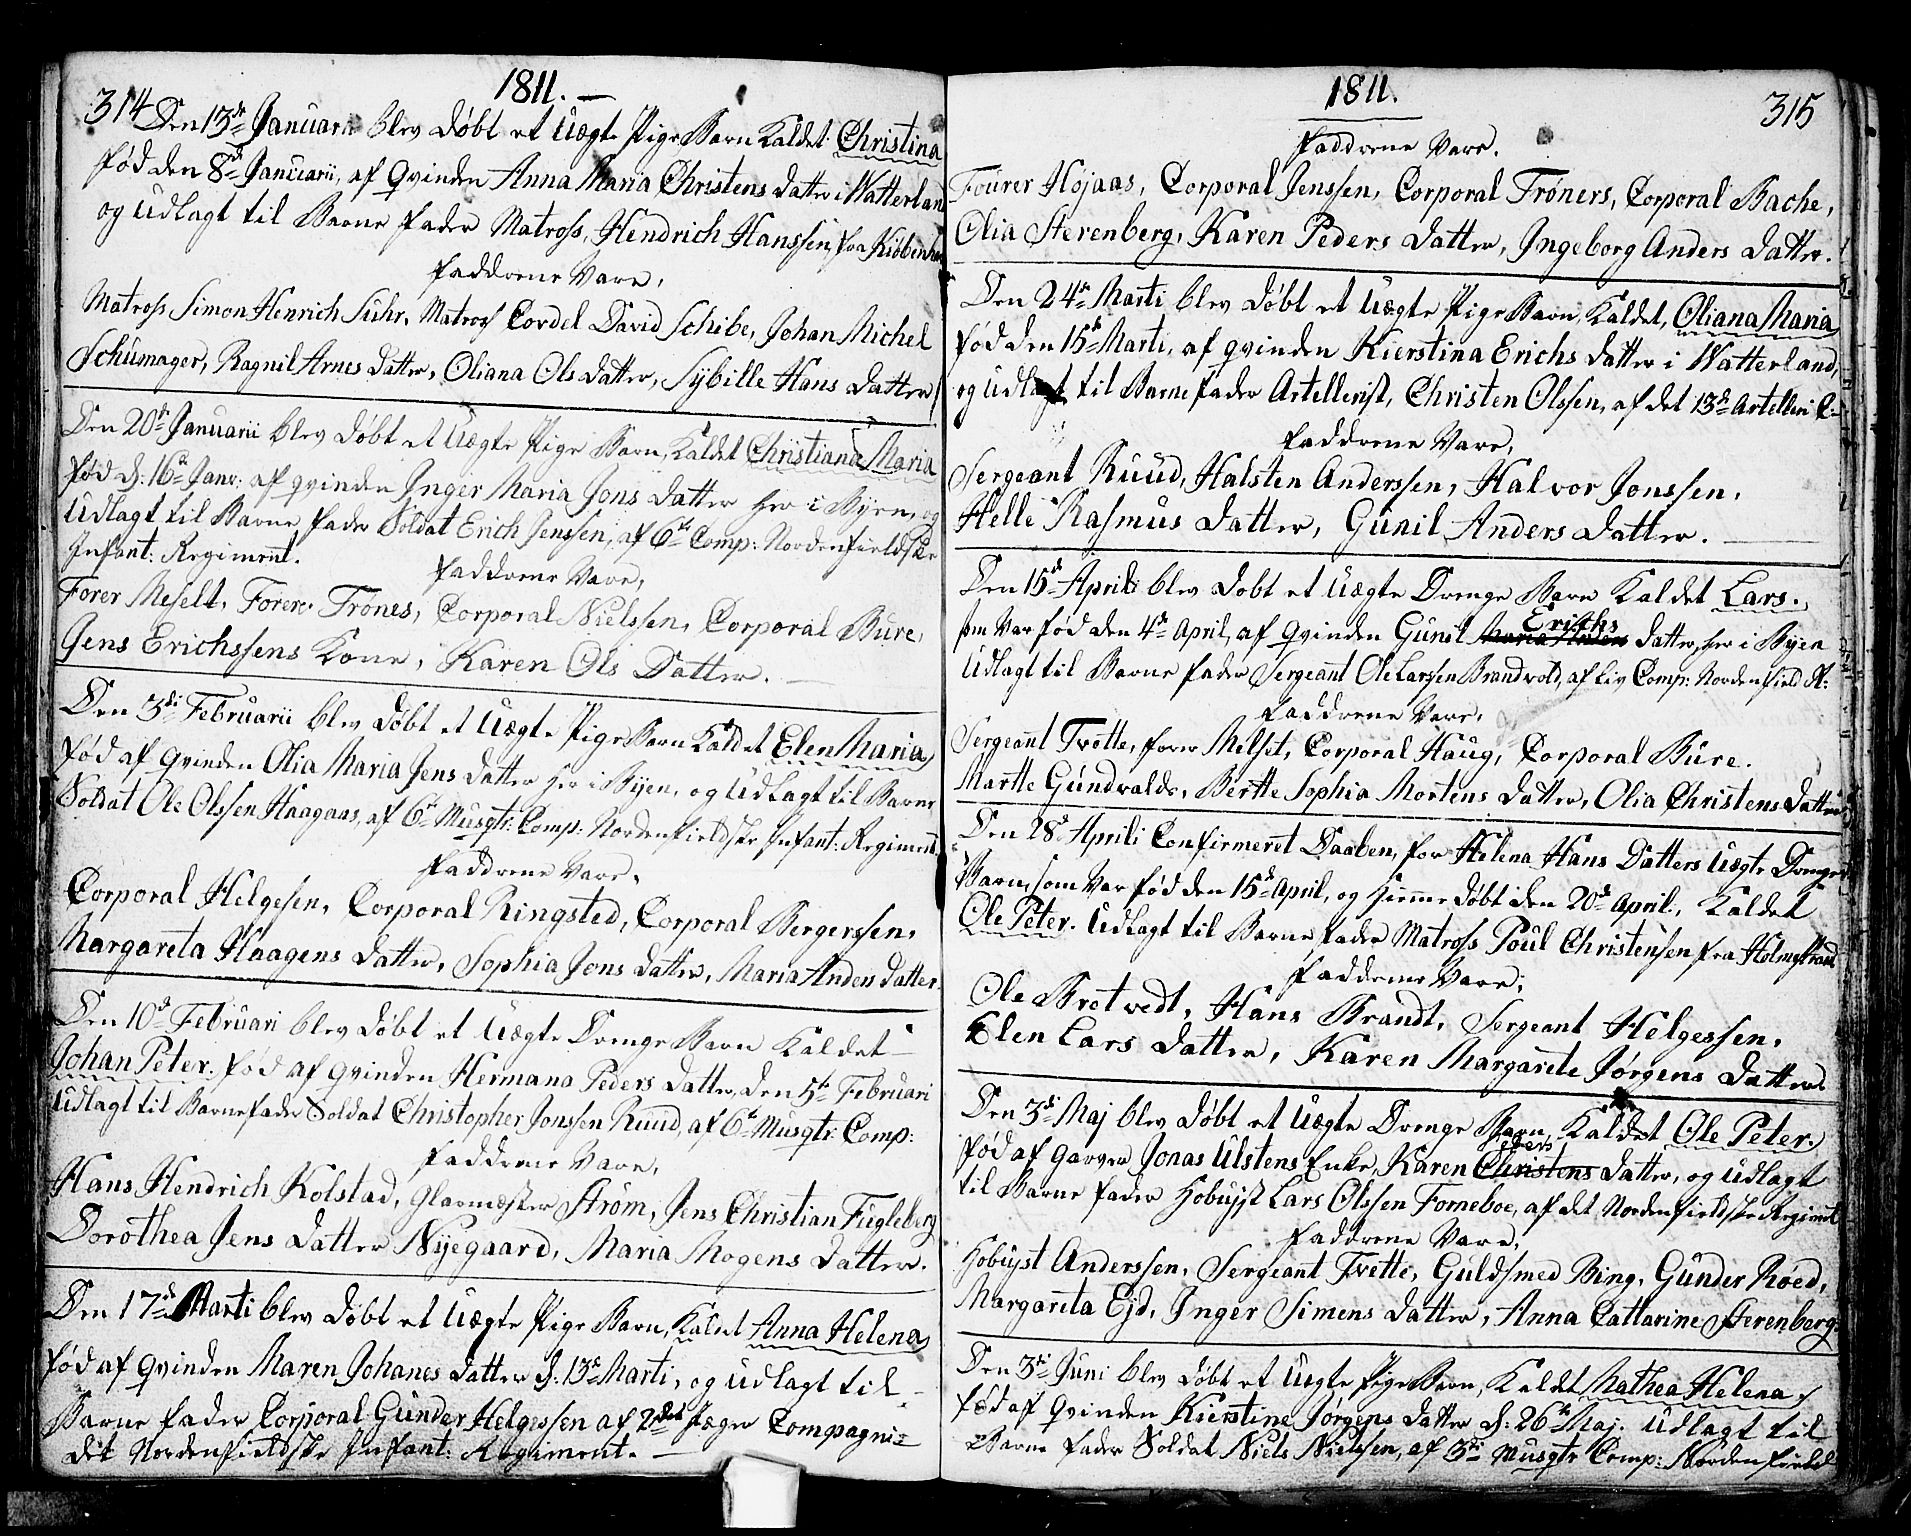 314
1811.
Den 13de Januarii blev døbt et Uægte Pige Barn Kaldet Christina
fød den 8de Januarii, af Qvinden Anna Maria Christens datter i Watterland
og Udlagt til Barne fader Matross, Hendrich Hanssen, fra Kiøbenha
Faddrene Vare,
Matross Simon Henrich Suhr, Matross Cordel David Schibe, Johan Michel
Schumager, Ragnil Arnes datter, Oliana Ols datter, Sÿbille Hans datter
Den 20de Januarii blev døbt et Uægte Pige Barn, Kaldet Christiana Maria
fød d: 16de Janr: af qvinden Inger Maria Jons datter her i Byen, og
Udlagt til Barne fader Soldat Erich Jenssen, af 6te Comp: Nordenfieldske
Infant: Regiment.
Faddrene Vare,
Forer Meselt, Forer Trønes, Corporal Nielssen, Corporal Bure,
Jens Erichssens Kone, Karen Ols Datter.
Den 3die Februarii blev døbt et Uægte Pige Barn Kaldet Elen Maria
fød af qvinden Olia Maria Jens datter her i Byen, og Udlagt til Barne
Soldat Ole Olssen Haagaas, af 6te Musqtr: Comp: Nordenfieldske Infant: Regiment
Faddrene Vare,
Corporal Helgesen, Corporal Ringsted, Corporal Bergerssen,
Margareta Haagens datter, Sophia Jons datter, Maria Anders datter.
Den 10de Februari blev døbt et Uægte Drenge Barn Kaldet
Johan Peter. fød af qvinden Hermana Peders datter, den 5te Februari
Udlagt til Barnefader Soldat Christopher Jonssen Ruud, af 6te Musqtr: Comp:
Faddrene Vare,
Hans Hendrich Kolstad, Glarmester Strøm, Jens Christian Fugleberg
Dorothea Jens datter Nyegaard, Maria Mogens datter.
Den 17de Marti blev døbt et Uægte Pige Barn, Kaldet Anna Helena
fød af qvinden Maren Johanes datter d: 13de Marti, og Udlagt til
Barne fader Corporal Gunder Helgessen af 2det Jæger Compagnie
det Nordenfieldske Infant: Regiment.
1811.
315
Faddrene Vare.
Fourer Højaas, Corporal Jenssen, Corporal Trøners, Corporal Bache,
Olia Sterenberg, Karen Peders datter, Ingeborg Anders datter.
Den 24de Marti blev døbt et Uægte Pige Barn, Kaldet, Oliana Maria
fød den 15de Marti, af qvinden Kierstina Erichs datter i Watterland,
og Udlagt til Barnefader Artellerist, Christen Olssen, af det 13de Artelleri C
Faddrene Vare,
Sergeant Ruud, Halsten Anderssen, Halvor Jonssen,
Helle Rasmus datter, Gunil Anders datter.
Den 15de Aprili blev døbt et Uægte Drenge Barn Kaldet Lars.
som Var fød den 4de April, af Qvinden Gunil Erichs datter, her i Byen
Udlagt til Barne fader Sergeant Ole Larsen Brandvold, af Liv Comp: Nordenfield R:
Faddrene Vare,
Sergeant Tvette, forer Melset, Corporal Haug, Corporal Bure.
Martte Gundvalds, Bertte Sophia Mortens datter, Olia Christens datter
Den 28de Aprili Confirmeret Daaben, for Helena Hans Datters Uægte Drenge
Barn, som Var fød den 15de April, og hieme døbt den 20de April, Kaldet
Ole Peter. Udlagt til Barne fader Matross Poul Christensen fra Holmestrand
Faddrene Vare,
Ole Bretvedt, Hans Brandt, Sergeant Helgessen,
Elen Lars datter, Karen Margarete Jørgens datter
Den 3die Maj blev døbt et Uægte Drenge Barn, Kaldet Ole Peter.
fød af Garver Jonas Ulstens Enke, Karen Christens datter, og Udlagt
til Barne fader Hoboist Lars Olssen Forneboe, af det Nordenfieldske Regiment
Faddrene Vare,
Hoboist Anderssen, Sergeant Tvette, Guldsmed Bing, Gunder Røed,
Margareta Ejd, Inger Simens datter, Anna Cattarine Sterenberg.
Den 3die Juni blev døbt et Uægte Pige Barn, Kaldet Mathea Helena,
fød af Qvinden Kierstine Jørgens datter d: 26de Maj. Udlagt til
Barne fader Soldat Niels Nielssen, af 3die Musqtr Comp: Nordenfield